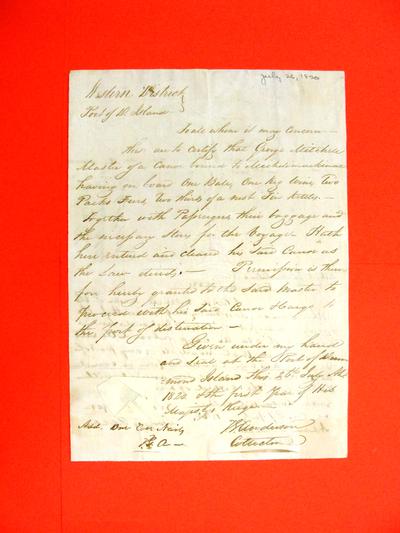 July 26, 1820
Western District
Port of D. Island
To all whom it may Concern —
This are to Certify that George Mitchell
Master of a Canoe bound to Michilimackinac
having on board One Bale, One Keg Wine, Two
Packs Furs, two
Together with Passengers their baggage and
the necessary Stores for the Voyage Hath
here entered and cleared his Said Canoe as
the Law directs. — Permission is there
fore hereby granted to the Said Master to
proceed with his Said Canoe & Cargo to
the port of destination —
Given under my hand
and Seal at the Port of Drum
mond Island this 26th July
1820 & the first Year of His
Majestys Reign
Anderson
Collector